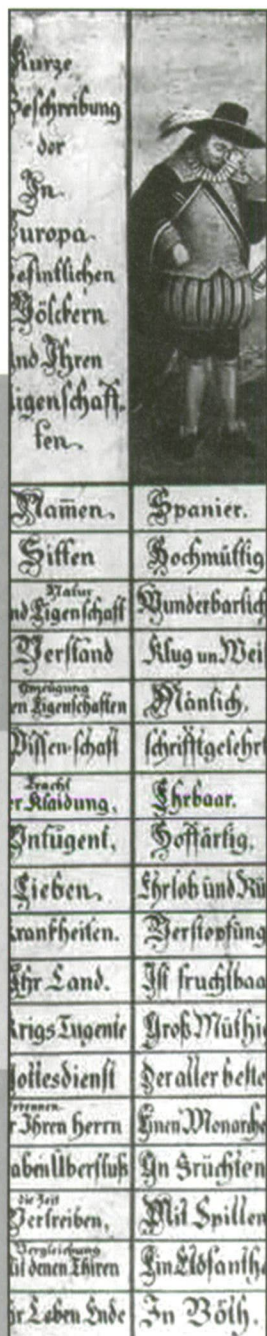 Kurze
Beschreibung
der
In
Europa
Befintlichen
Völckern
Und Ihren
Aigenschaff-
ten.
Namen. Spanier.
Sitten Hochmüttig
Natur
Und Eigenschaft Wunderbarlich
Verstand Klug un Wei
en Eigenschaften Mänlich.
Wissen-schaft schrifftgelehrt
Tracht
er Klaidung. Ehrbaar.
Untugent, Hoffärtig.
Lieben. Ehrlob und Rü
Krankheiten. Verstopfung
Ihr Land. Ist fruchtbaa
Krigs Tugente Groß Müthig
Gottesdienst Der aller beste
r Ihren Herrn Einen Monarche
Haben Überfluß In Früchten
die Zeit
Vertreiben, Mit Spillen
Vergleichung
Mit denen Thiren Ein Elofanthe
Ihr Leben Ende In Böth.